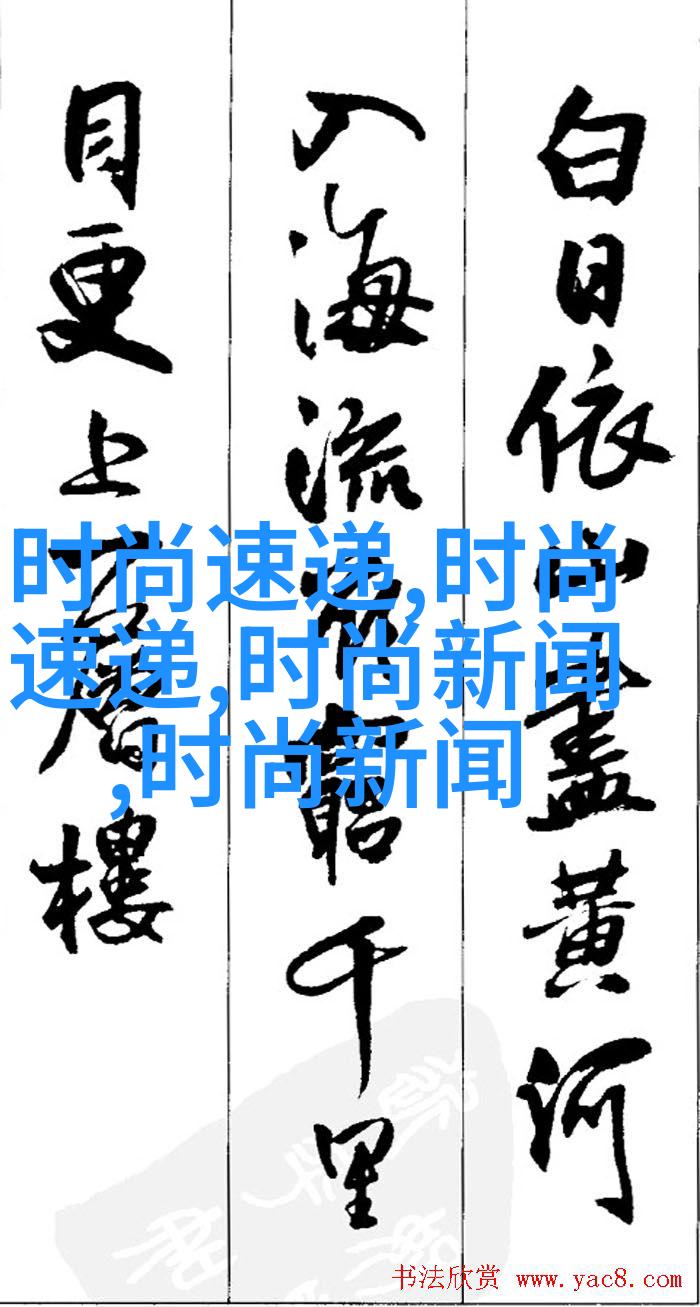 白日依山盡黄河
入海流欲窮千里
目更上一層樓
时尚速递,时尚
速递,时尚新闻
,时尚新闻
书法欣赏 www.yac8.com